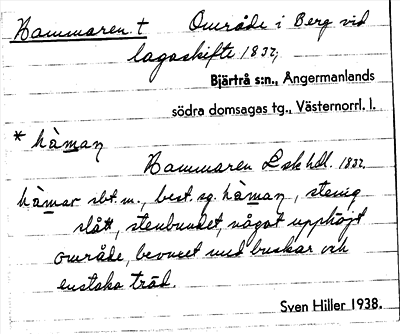 Hammaren. † Område i Berg vid
lagaskifte 1832;
Bjärtrå s:n., Ångermanlands
södra domsagas tg., Västernorrl. l.
* hàman
Hammaren Lsk hdl. 1832.
hàmar sbt. m., best. sg. hàman, stenig
slått, stenbundet, något upphöjt
område, bevuxet med buskar och
enstaka träd.
Sven Hiller 1938.